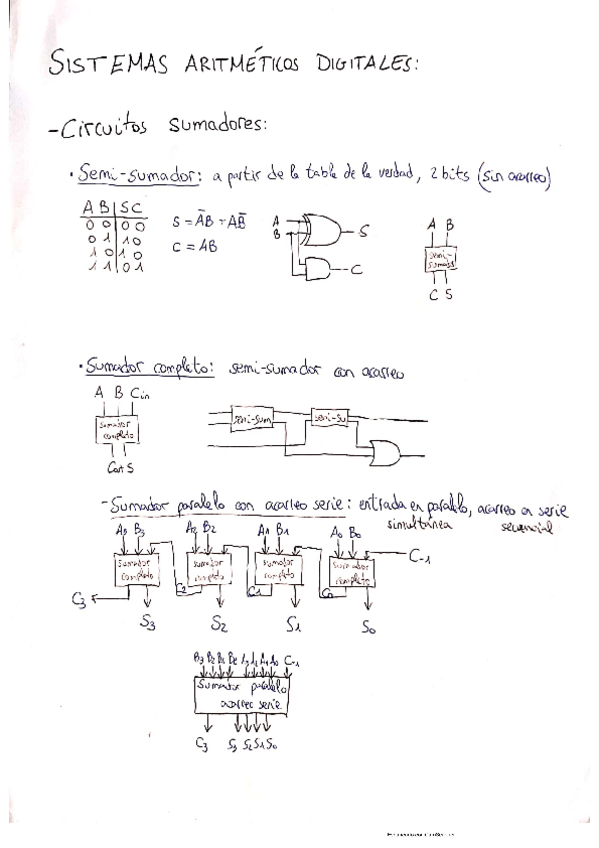 SISTEMAS ARITMÉTICOS DIGITALES:
-Circuitos sumadores:
· Semi-sumador: a partir de la tabla de la verdad, 2 bits (sin acarreo)
A B | S C
0 0 | 0 0
0 1 | 1 0
1 0 | 1 0
1 1 | 0 1
S = A̅B = AB̅
C = AB
A
B
S
C
A B
semi-
sumador
C S
· Sumador completo: semi-sumador con acarreo
A B Cin
sumador
completo
Cout S
semi-sum
semi-su
- Sumador paralelo con acarreo serie: entrada en paralelo, acarreo en serie
simultánea secuencial
A3 B3 A2 B2 A1 B1 A0 B0
C-1
sumador completo
sumador completo
sumador completo
sumador completo
C3 C2 C1 C0
S3 S2 S1 S0
C-1
Sumador paralelo
acarreo serie
C3 S3 S2 S1 S0